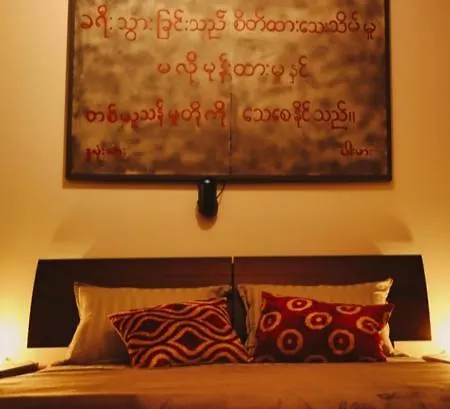 ခရီးသွားခြင်းသည် စိတ်ထားသေးသိမ်မှု
မလိုမုန်းထားမှုနှင့်
တစ်ယူသန်မှုတို့ကို သေစေနိုင်သည်။